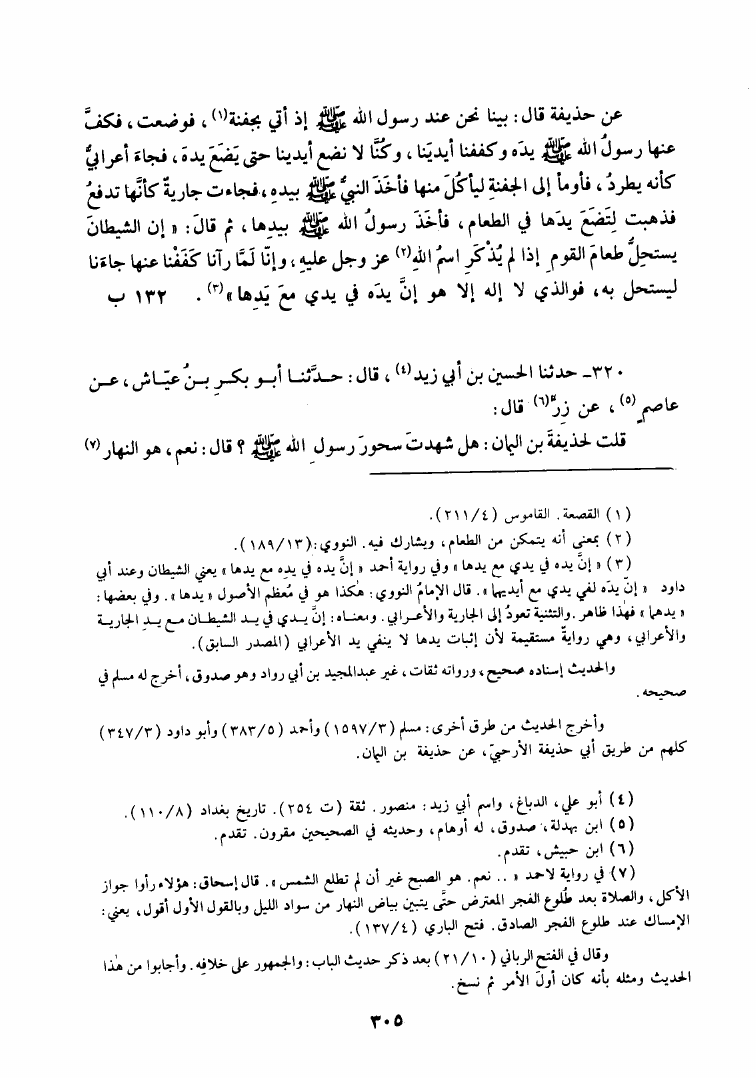 عن حذيفة قال: بينا نحن عند رسول الله ﷺ إذ أتي بجفنة(١)، فوضعت، فكفَّ
عنها رسولُ الله ﷺ يدَه وكففنا أيديَنا، وكُنَّا لا نضع أيدينا حتى يَضَعَ يدهَ، فجاءَ أعرابيٌّ
كأنه يطردُ، فأومأ إلى الجفنةِ ليأكلَ منها فأخَذَ النبيُّ ﷺ بيدهِ، فجاءت جاريةٌ كأنَّها تدفعُ
فذهبت لِتَضَعَ يدَها في الطعام، فأخَذَ رسولُ الله ﷺ بيدِها، ثم قالَ: « إن الشيطانَ
يستحِلُّ طعامَ القومِ إذا لم يُذْكَرِ اسمُ اللهِ(٢) عز وجل عليهِ، وإنّا لَمَّا رآنا كَفَفْنا عنها جاءَنا
ليستحل به، فوالذي لا إله إلا هو إنَّ يدَه في يدي معَ يَدِها»(٣). ١٣٢ ب
٣٢٠ـ حدثنا الحسين بن أبي زيد(٤)، قال: حدَّثنا أبو بكرِ بنُ عيّاش، عن
عاصمٍ(٥)، عن زِرٍّ(٦) قال:
قلت لحذيفةَ بن اليمان: هل شهدتَ سحورَ رسولِ الله ﷺ ؟ قال: نعم، هو النهار(٧)
(١) القصعة. القاموس (٢١١/٤).
(٢) بمعنى أنه يتمكن من الطعام، ويشارك فيه. النووي:(١٨٩/١٣).
(٣) « إنَّ يده في يدي مع يدها» وفي رواية أحمد « إنَّ يده في يدِه مع يدها» يعني الشيطان وعند أبي
داود « إنّ يدَه لفي يدي مع أيديهما». قال الإمامُ النووي: هكذا هو في مُعظم الأصول « يدها». وفي بعضها:
« يدهما» فهذا ظاهر. والتثنية تعودُ إلى الجارية والأعرابي. ومعناه: إنَّ يدي في يد الشيطان مع يد الجارية
والأعرابي، وهي روايةٌ مستقيمة لأن إثبات يدها لا ينفي يد الأعرابي (المصدر السابق).
والحديث إسناده صحيح، ورواته ثقات، غير عبدالمجيد بن أبي رواد وهو صدوق، أخرج له مسلم في
صحيحه.
وأخرج الحديث من طرق أخرى: مسلم (١٥٩٧/٣) وأحمد (٣٨٣/٥) وأبو داود (٣٤٧/٣)
كلهم من طريق أبي حذيفة الأرحبيّ، عن حذيفة بن اليمان.
(٤) أبو علي، الدباغ، واسم أبي زيد: منصور. ثقة (ت ٢٥٤). تاريخ بغداد (١١٠/٨).
(٥) ابن بهدلة، صدوق، له أوهام، وحديثه في الصحيحين مقرون. تقدم.
(٦) ابن حبيش، تقدم.
(٧) في رواية لاحمد « .. نعم. هو الصبح غير أن لم تطلع الشمس». قال إسحاق: هؤلاء رأوا جواز
الأكل، والصلاة بعد طلوع الفجر المعترض حتَّى يتبين بياض النهار من سواد الليل وبالقول الأول أقول، يعني:
الإمساك عند طلوع الفجر الصادق. فتح الباري (١٣٧/٤).
وقال في الفتح الرباني (٢١/١٠) بعد ذكر حديث الباب: والجمهور على خلافِه. وأجابوا من هذا
الحديث ومثله بأنه كان أولَ الأمر ثم نسخ.
٣٠٥